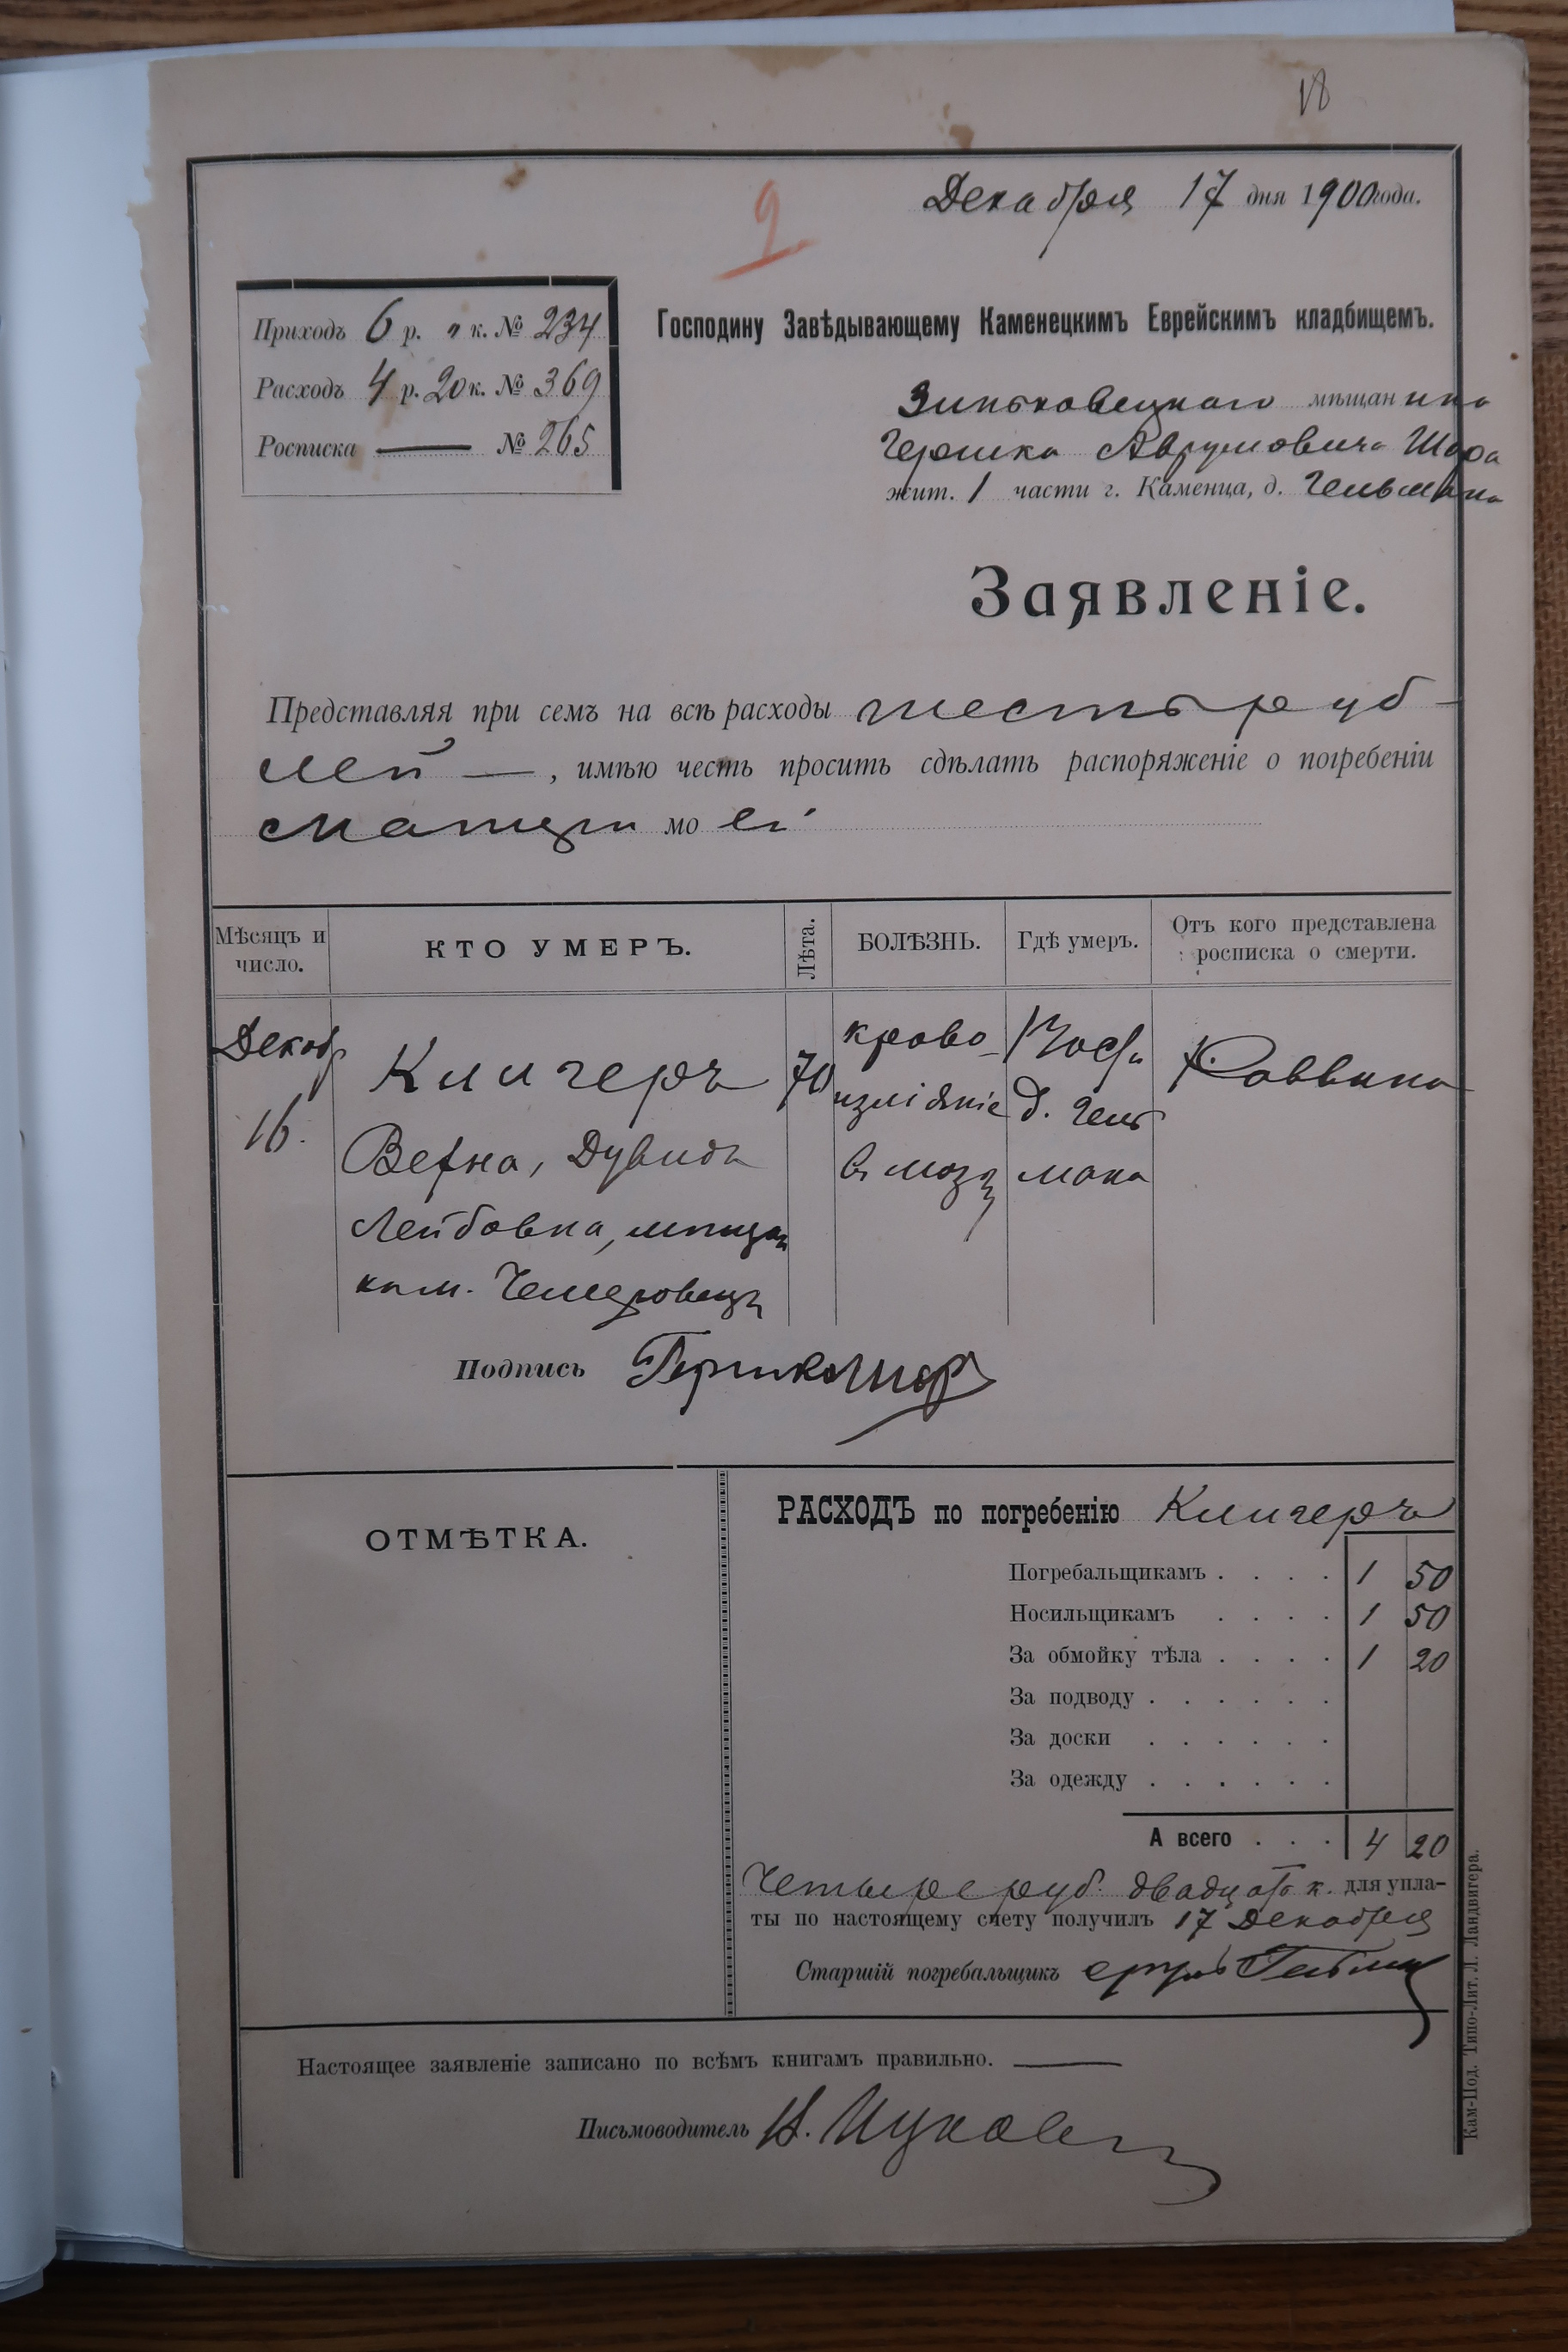 18
Декабря 17 дня 1900 года.
9
Приходъ 6 р. " к. № 234
Расходъ 4 р. 20 к. № 369
Росписка — № 265
Господину Завѣдывающему Каменецкимъ Еврейскимъ кладбищемъ.
Зиньковецкаго мѣщанина
Гершка Аврумовича Шора
жит. 1 части г. Каменца, д. Гельмана
Заявленіе.
Представляя при семъ на всѣ расходы шесть руб-
лей —, имѣю честь просить сдѣлать распоряженіе о погребеніи
матери моей
Мѣсяцъ и число.
КТО УМЕРЪ.
Лѣта.
БОЛѢЗНЬ.
Гдѣ умеръ.
Отъ кого представлена росписка о смерти.
Декабр 16.
Клигеръ
Бейна, Дувидъ
Лейбовна, мѣщан
ка м. Чемеровецъ
70
крово-
изліяніе
въ мозгъ
д. Гель
мана
Раввина
Подпись Гершко Шор
ОТМѢТКА.
РАСХОДЪ по погребенію Клигеръ
Погребальщикамъ . . . . 1 50
Носильщикамъ . . . . 1 50
За обмойку тѣла . . . . 1 20
За подводу . . . . . .
За доски . . . . . .
За одежду . . . . . .
А всего . . . 4 20
Четыре руб. двадцать к. для упла-
ты по настоящему счету получилъ 17 Декабря
Старшій погребальщикъ
Настоящее заявленіе записано по всѣмъ книгамъ правильно. —
Письмоводитель
Кам-Под. Типо-Лит. Л. Ландвигера.